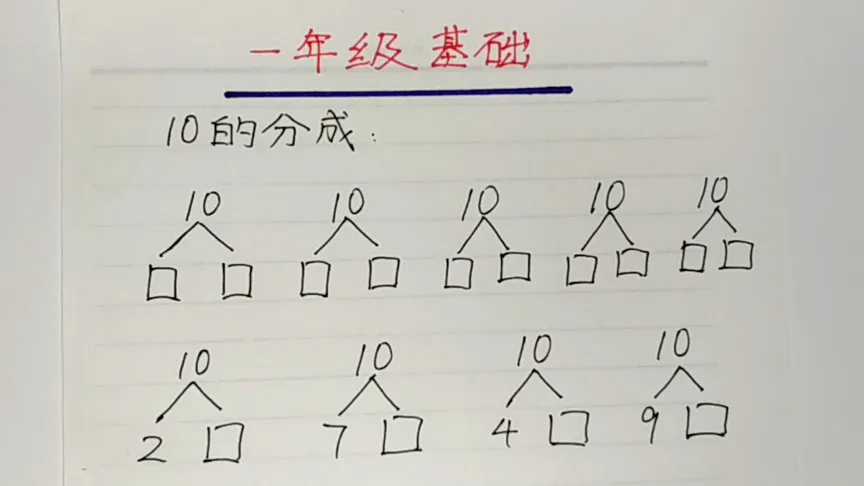 一年级基础
10的分成:
10 10 10 10 10
10 10 10 10
2 7 4 9